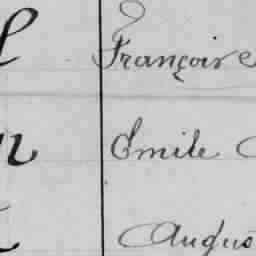 François
Emile
Augus